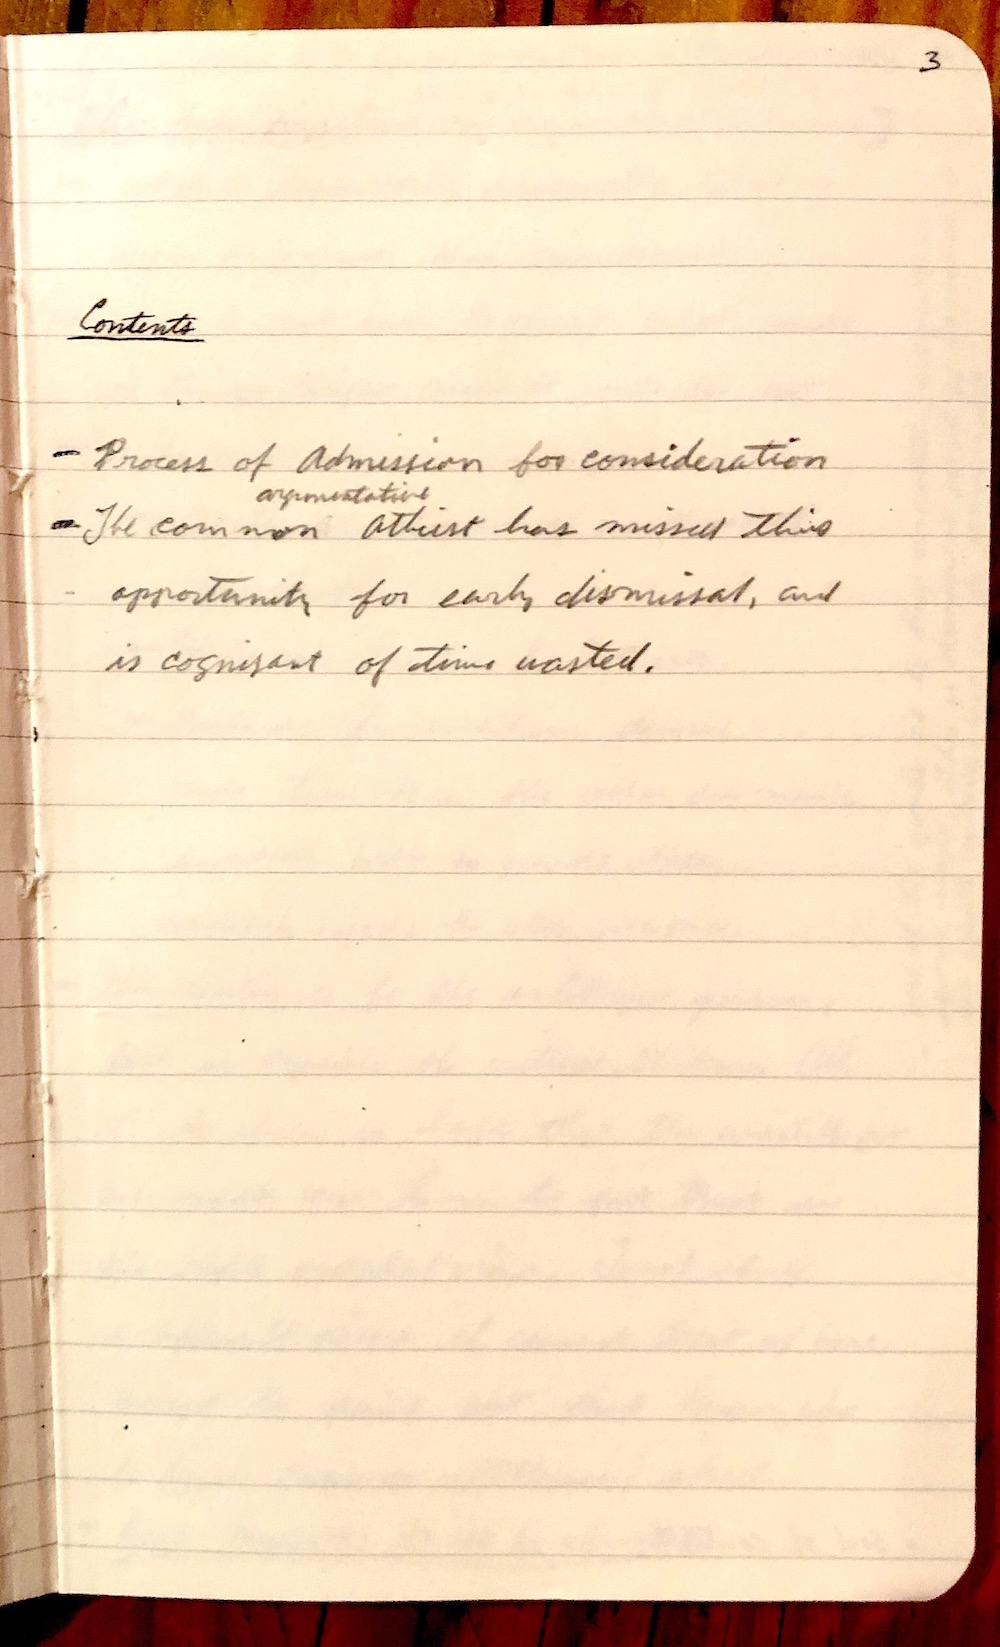 3
Contents
- Process of Admission for consideration
argumentative
- The common Atheist has missed this
- opportunity for early dismissal, and
is cognisant of time wasted.